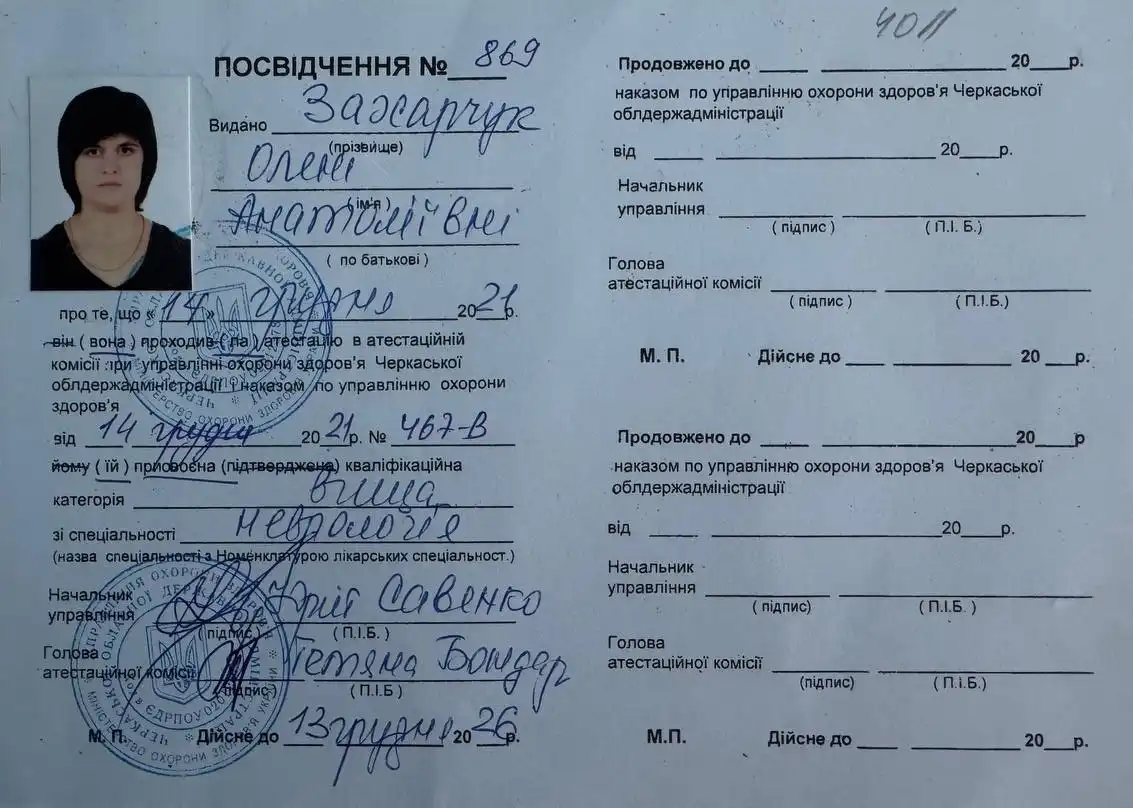 ПОСВІДЧЕННЯ № 869
Видано Захарчук
(прізвище)
Олені
( ім'я )
Анатоліївні
( по батькові )
про те, що « 14 » грудня 2021 р.
він ( вона ) проходив ( ла ) атестацію в атестаційній
комісії при управлінні охорони здоров'я Черкаської
облдержадміністрації і наказом по управлінню охорони
здоров'я
від 14 грудня 2021 р. № 467-В
йому ( їй ) присвоєна (підтверджена) кваліфікаційна
категорія вища
зі спеціальності неврологія
(назва спеціальності з Номенклатурою лікарських спеціальност.)
Начальник
управління Юрій Савенко
( підпис ) ( П.І.Б. )
Голова
атестаційної комісії Тетяна Бондар
підпис ( П.І.Б )
М. П. Дійсне до 13 грудня 2026 р.
40П
Продовжено до ____ ____ 20___р.
наказом по управлінню охорони здоров'я Черкаської
облдержадміністрації
від ____ ____ 20___р.
Начальник
управління
( підпис ) ( П.І. Б.)
Голова
атестаційної комісії
( підпис ) ( П.І.Б.)
М. П. Дійсне до ____ ____ 20 ___р.
Продовжено до ____ ____ 20___р
наказом по управлінню охорони здоров'я Черкаської
облдержадміністрації
від ____ ____ 20___р.
Начальник
управління
( підпис) ( П.І.Б. )
Голова
атестаційної комісії
(підпис) ( П.І.Б.)
М.П. Дійсне до ____ ____ 20___р.